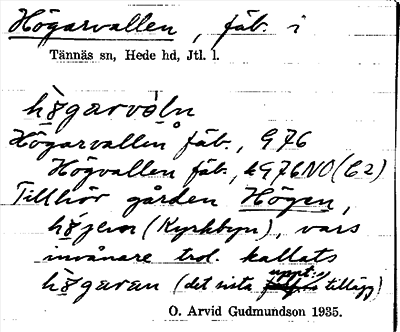 Högarvallen, fäb. i
Tännäs sn, Hede hd, Jtl. l.
högarvaln
Högarvallen fäb., G76
Högvallen fäb., kG76NO(C2)
Tillhör gården Högen,
(Kyrkbyn), vars
invånare trol. kallats
högaran (det sista uppt:s tillägg)
O. Arvid Gudmundson 1935.